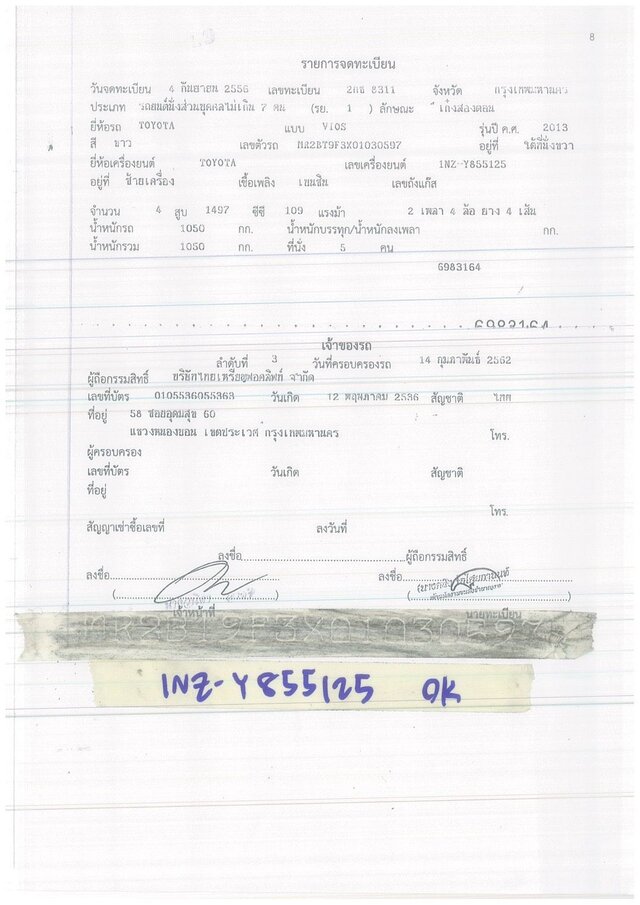 8
รายการจดทะเบียน
วันจดทะเบียน 4 กันยายน 2556 เลขทะเบียน 8311 จังหวัด กรุงเทพมหานคร
ประเภท รถยนต์นั่งส่วนบุคคลไม่เกิน 7 คน (รย. 1 ) ลักษณะ เก๋งสองตอน
ยี่ห้อรถ TOYOTA แบบ VIOS รุ่นปี ค.ศ. 2013
สี ขาว เลขตัวรถ MR2BT9F3X01030597 อยู่ที่ ใต้ที่นั่งขวา
ยี่ห้อเครื่องยนต์ TOYOTA เลขเครื่องยนต์ 1NZ-Y855125
อยู่ที่ ซ้ายเครื่อง เชื้อเพลิง เบนซิน เลขถังแก๊ส
จำนวน 4 สูบ 1497 ซีซี 109 แรงม้า 2 เพลา 4 ล้อ ยาง 4 เส้น
น้ำหนักรถ 1050 กก. น้ำหนักบรรทุก/น้ำหนักลงเพลา กก.
น้ำหนักรวม 1050 กก. ที่นั่ง 5 คน
6983164
6983164
เจ้าของรถ
ลำดับที่ 3 วันที่ครอบครองรถ 14 กุมภาพันธ์ 2562
ผู้ถือกรรมสิทธิ์ บริษัทไทยเหรียญฟอคลิฟท์ จำกัด
เลขที่บัตร 0105536055363 วันเกิด 12 พฤษภาคม 2536 สัญชาติ ไทย
ที่อยู่ 58 ซอยอุดมสุข 60
แขวงหนองบอน เขตประเวศ กรุงเทพมหานคร โทร.
ผู้ครอบครอง
เลขที่บัตร วันเกิด สัญชาติ
ที่อยู่
โทร.
สัญญาเช่าซื้อเลขที่ ลงวันที่
ลงชื่อ ผู้ถือกรรมสิทธิ์
ลงชื่อ ลงชื่อ
เจ้าหน้าที่ นายทะเบียน
MR2BT9F3X01030597
1NZ-Y855125 OK